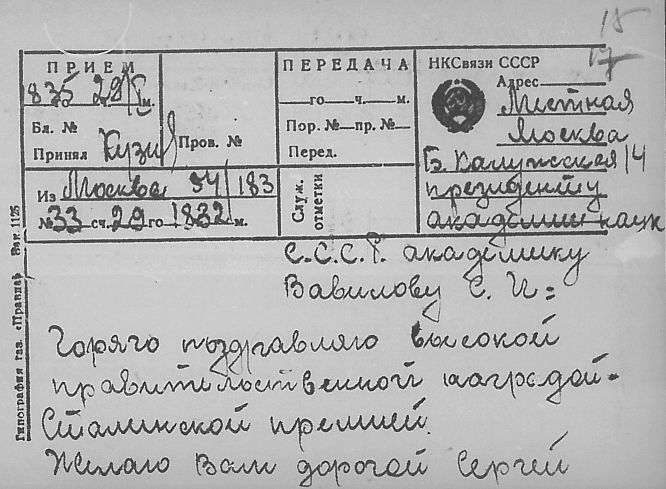 15
17
ПРИЕМ
835 29/I м.
Бл. №
Принял Кузи
Пров. №
ПЕРЕДАЧА
го ч. м.
Пор. № пр. №
Перед.
Служ. отметки
Из Москва 54/183
№ 33 сч. 29 го 18 32 м.
НКСвязи СССР
Адрес
Местная
Москва
Б. Калужская 14
президенту
академии наук
С.С.С.Р. академику
Вавилову С. И=
Горячо поздравляю высокой
правительственной наградой-
Сталинской премией.
Желаю Вам дорогой Сергей
Типография газ. «Правда» Зак. 1125